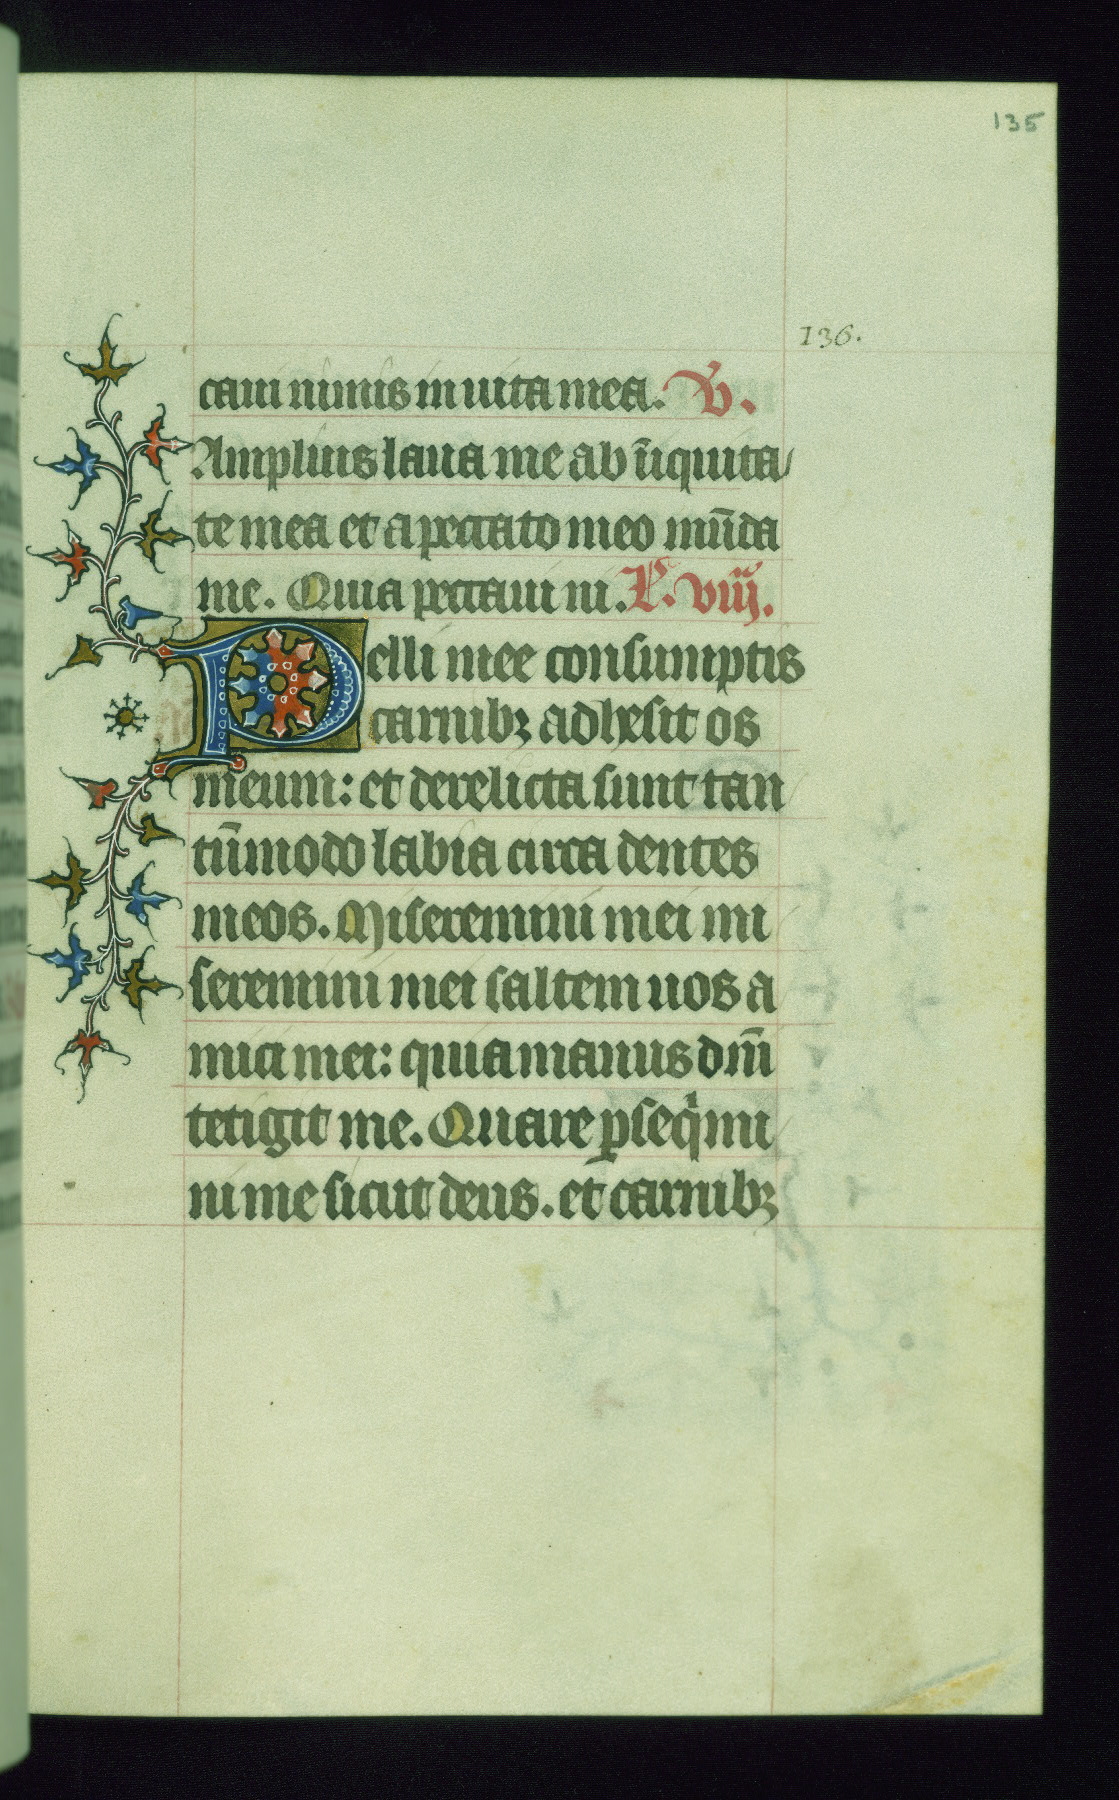 135
136.
caui nimis in uita mea. V.
Amplius laua me ab iīquita
te mea et a peccato meo mūda
me. Quia peccaui ni. L. viij.
Pelli mee consumptis
carnibꝫ adhesit os
meum: et derelicta sunt tan
tūmodo labia circa dentes
meos. Miseremini mei mi
seremini mei saltem uos a
mici mei: quia manus dm̄i
tetigit me. Quare ꝑseq̇mi
ni me sicut deus. et carnibꝫ